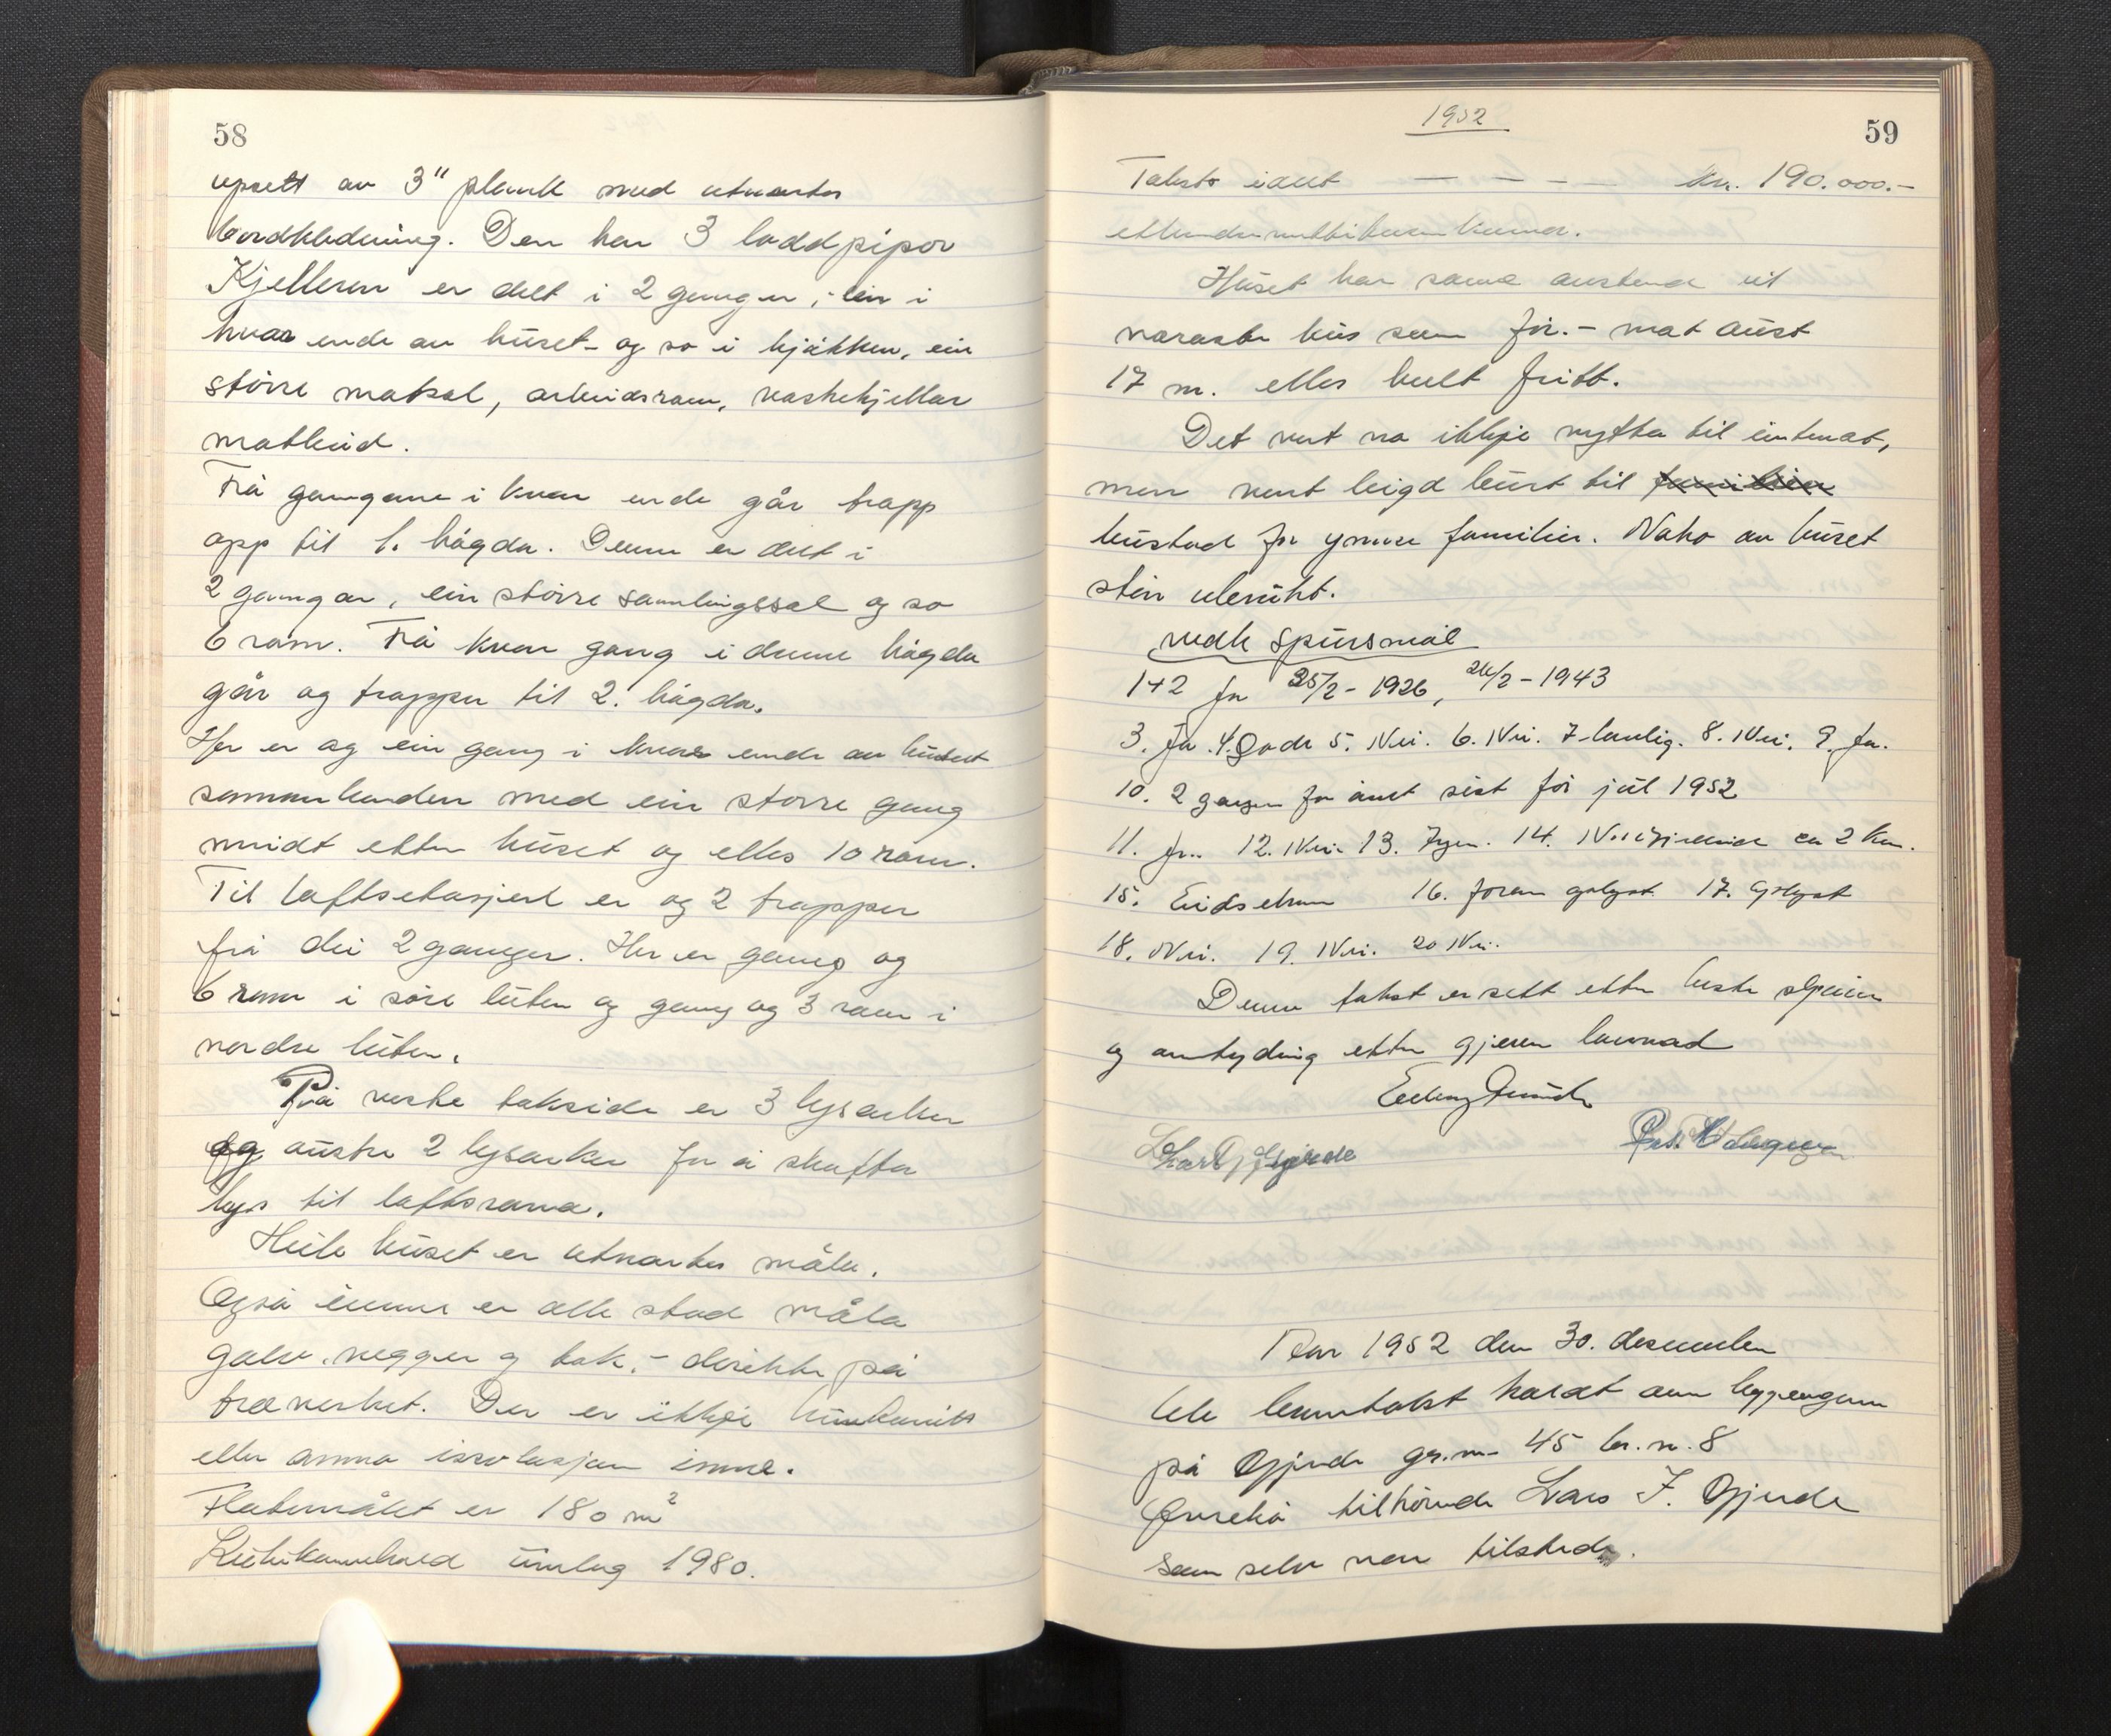 58
upsett av 3" plank med utvortes
bordkledning. Den har 3 loddpipor
Kjelleren er delt i 2 ganger, - ein i
kvar ende av huset - og so i kjøkken, ein
större matsal, arbeidsrom, vaskekjellar
matbud.
Frå gangane i kvar ende går trapp
opp til 1. högda. Denne er delt i
2 gangar, ein större samlingssal og so
6 rom. Frå kvar gang i denne högda
går og trapper til 2. högda.
Her er og ein gang i kvar ende av huset
sammenbunden med ein större gang
midt etter huset og elles 10 rom.
Til loftsetasjen er og 2 trapper
frå dei 2 ganger. Her er gang og
6 rom i söre luten og gang og 3 rom i
nordre luten.
På vestre takside er 3 lysarker
og austre 2 lysarker for å skaffa
lys til loftsroma.
Heile huset er utvortes måla.
Også inne er alle stad måla
golv, vegger og tak, - direkte på
treverket. Der er ikkje
eller anna issolasjon inne.
Flatemålet er 180 m²
Kubikkinnhald umlag 1980.
1952
59
Takst i alt — — — — kr. 190.000.-
etthundreognittitusen kroner.
Huset har same avstand til
næraste hus som för. - mot aust
17 m. elles heilt fritt.
Det vert no ikkje nytta til internat,
men vert leigd burt til familier
bustad for ymse familier. Noko av huset
stör ubrukt.
vedk spursmål
1+2 Ja 25/2 - 1926, 26/2 - 1943
3. Ja. 4. Gode 5. Nei. 6. Nei. 7. lovlig. 8. Nei. 9. Ja.
10. 2 ganger for året sist för jul 1952
11. Ja. 12. Nei. 13. Ingen. 14. Nei ca 2 km.
15. 16. 17.
18. Nei. 19. Nei. 20 Nei.
Denne takst er sett etter beste skjönn
og
Lars J. Gjerde
Var 1952 den 30. desember
ble branntakst halde over bygningen
på Gjerde gr.nr. 45 br.n. 8
tilhörende Lars J. Gjerde
som selv var tilstede.